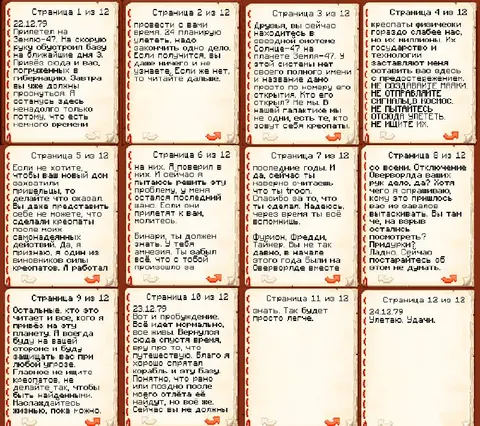 Страница 1 из 12
22.12.79
Прилетел на
Землю-47. На скорую
руку обустроил Базу
на ближайшие дня 3.
Привёз сюда и вас,
погруженных в
гибернацию. Завтра
вы уже должны
проснуться. Я
останусь здесь
ненадолго только
потому, что есть
немного времени
Страница 2 из 12
провести с вами
время. 24 планирую
улететь, надо
закончить одно дело.
Если получится, вы
даже ничего и не
узнаете. Если же нет,
то читайте дальше.
Страница 3 из 12
Друзья, вы сейчас
находитесь в
звёздной системе
Солнце-47 на
планете Земля-47. У
этой системы нет
своего полного имени
и название дано
просто по номеру его
открытия. Кто его
открыл? Не мы. В
нашей галактике мы
не одни, есть те, кто
зовут себя креопаты.
Страница 4 из 12
креопаты физически
гораздо слабее нас,
но их миллионы. Их
государство и
технологии
заставляют меня
оставить вас здесь
с предостережением.
НЕ СОЗДАВАЙТЕ МАЯКИ.
НЕ ОТПРАВЛЯЙТЕ
СИГНАЛЫ В КОСМОС.
НЕ ПЫТАЙТЕСЬ
ОТСЮДА УЛЕТЕТЬ.
НЕ ИЩИТЕ ИХ.
Страница 5 из 12
Если не хотите,
чтобы ваш новый дом
захватили
пришельцы, то
делайте что сказал.
Вы даже представить
себе не можете, что
сделали креопаты
после моих
самонадеянных
действий. Да, я
признаю, я один из
виновников силы
креопатов. Я работал
Страница 6 из 12
на них. Я поверил в
них. И сейчас я
пытаюсь решить эту
проблему, у меня
остался последний
шанс. Если они
прилетят к вам,
молитесь.
Бинари, ты должен
знать. У тебя
амнезия. Ты забыл
всё, что с тобой
произошло за
Страница 7 из 12
последние годы. И
да, сейчас ты
наверно считаешь
что ты troon.
Спасибо за то, что
ты сделал. Надеюсь,
через время ты всё
вспомнишь.
Фурион, Фредди,
Тайнер. Вы не так
давно, в начале
этого года были на
Оверворлде вместе
Страница 8 из 12
со всеми. Отключение
Оверворлда ваших
рук дело, да? Хотя
чего я спрашиваю,
кому это пришлось
вас из завалов
вытаскивать. Вы там
че, на взрыв
остались
посмотреть?
Придурки?
Ладно. Сейчас
постарайтесь об
этом не думать.
Страница 9 из 12
Остальные, кто это
читает и все, кого я
привёз на эту
планету. Я всегда
буду на вашей
стороне и буду
защищать вас при
любой угрозе.
Главное не ищите
креопатов, не
делайте так, чтобы
быть найденными.
Наслаждайтесь
жизнью, пока можно.
Страница 10 из 12
23.12.79
Вот и пробуждение.
Всё идёт нормально,
все живы. Вернулся
сюда спустя время,
вру про то, что
путешествую. Благо я
хорошо спрятал
корабль и эту Базу.
Понятно, что рано
или поздно после
моего отлёта её
найдут, но всё же.
Сейчас вы не должны
Страница 11 из 12
знать. Так будет
просто легче.
Страница 12 из 12
24.12.79
Улетаю. Удачи.